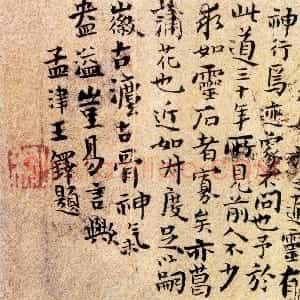 靈有
神行焉迹象不問也予於
此道三十年所見前人不少
求如靈石者寡矣亦菖
蒲花也近如丹度足以嗣
徽古古骨神氣
盎溢豈易言歟
孟津王鐸題